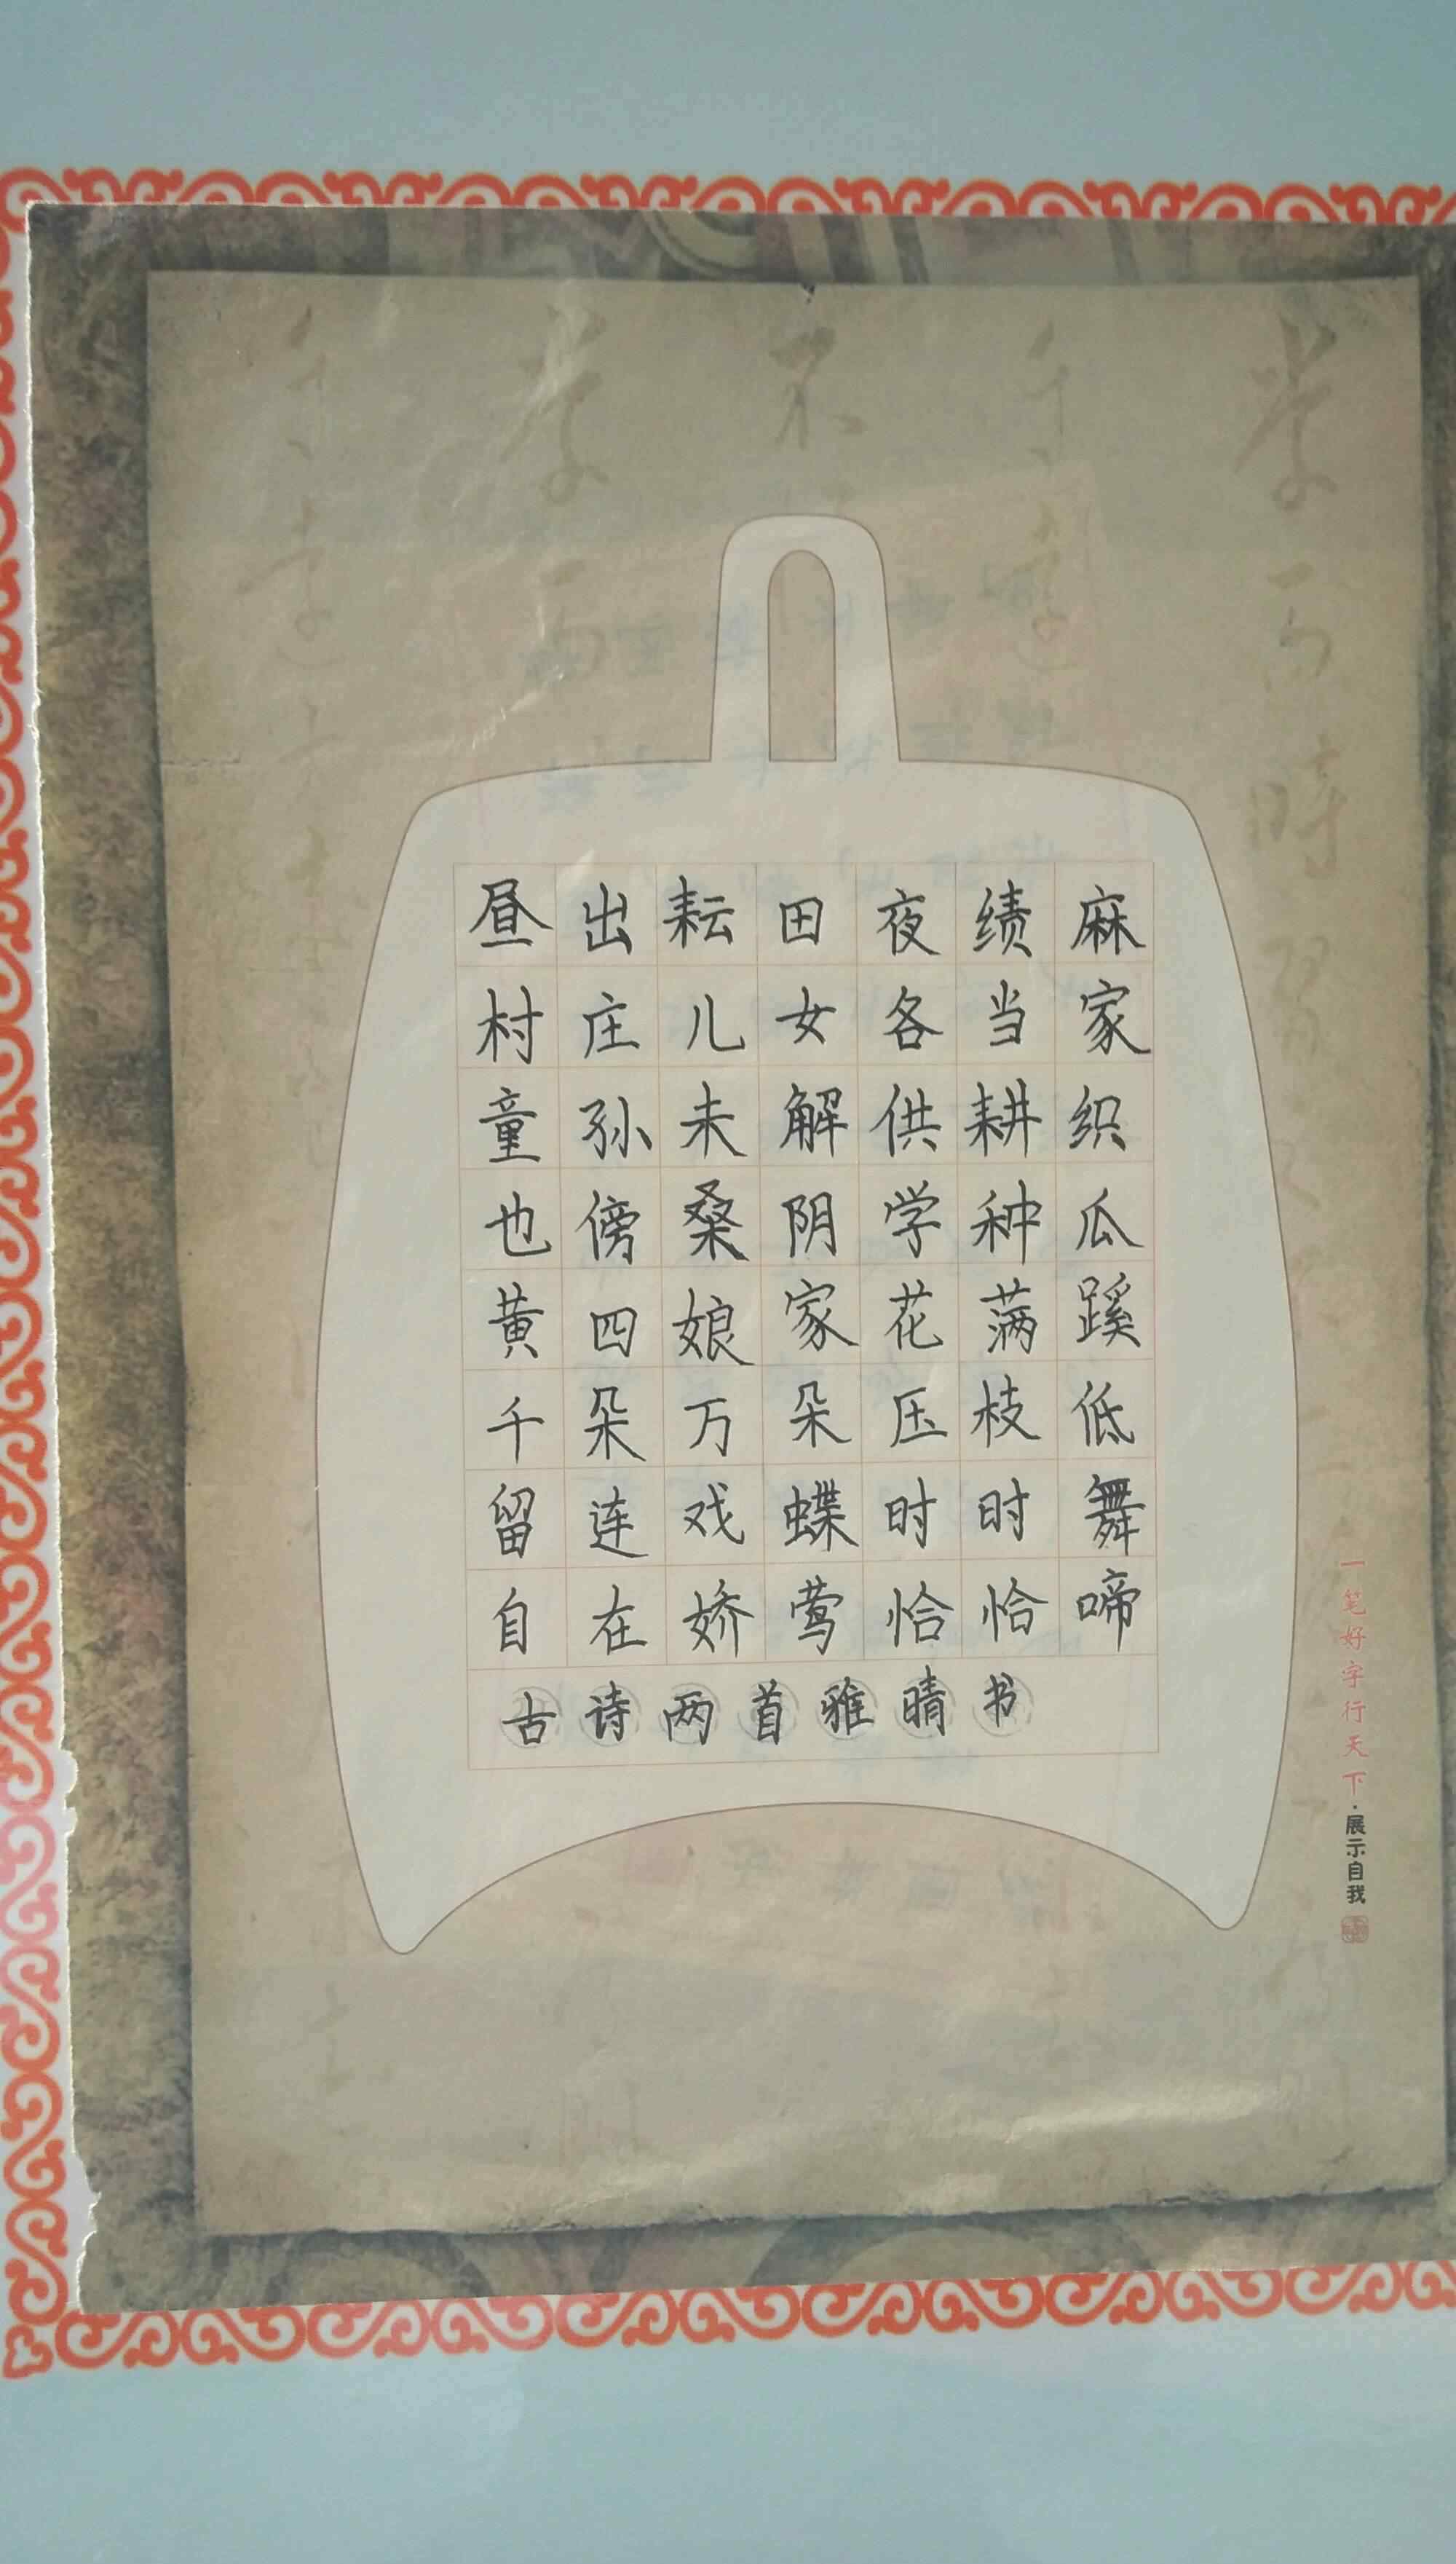 昼出耘田夜绩麻
村庄儿女各当家
童孙未解供耕织
也傍桑阴学种瓜
黄四娘家花满蹊
千朵万朵压枝低
留连戏蝶时时舞
自在娇莺恰恰啼
古诗两首雅晴书
一笔好字行天下·展示自我